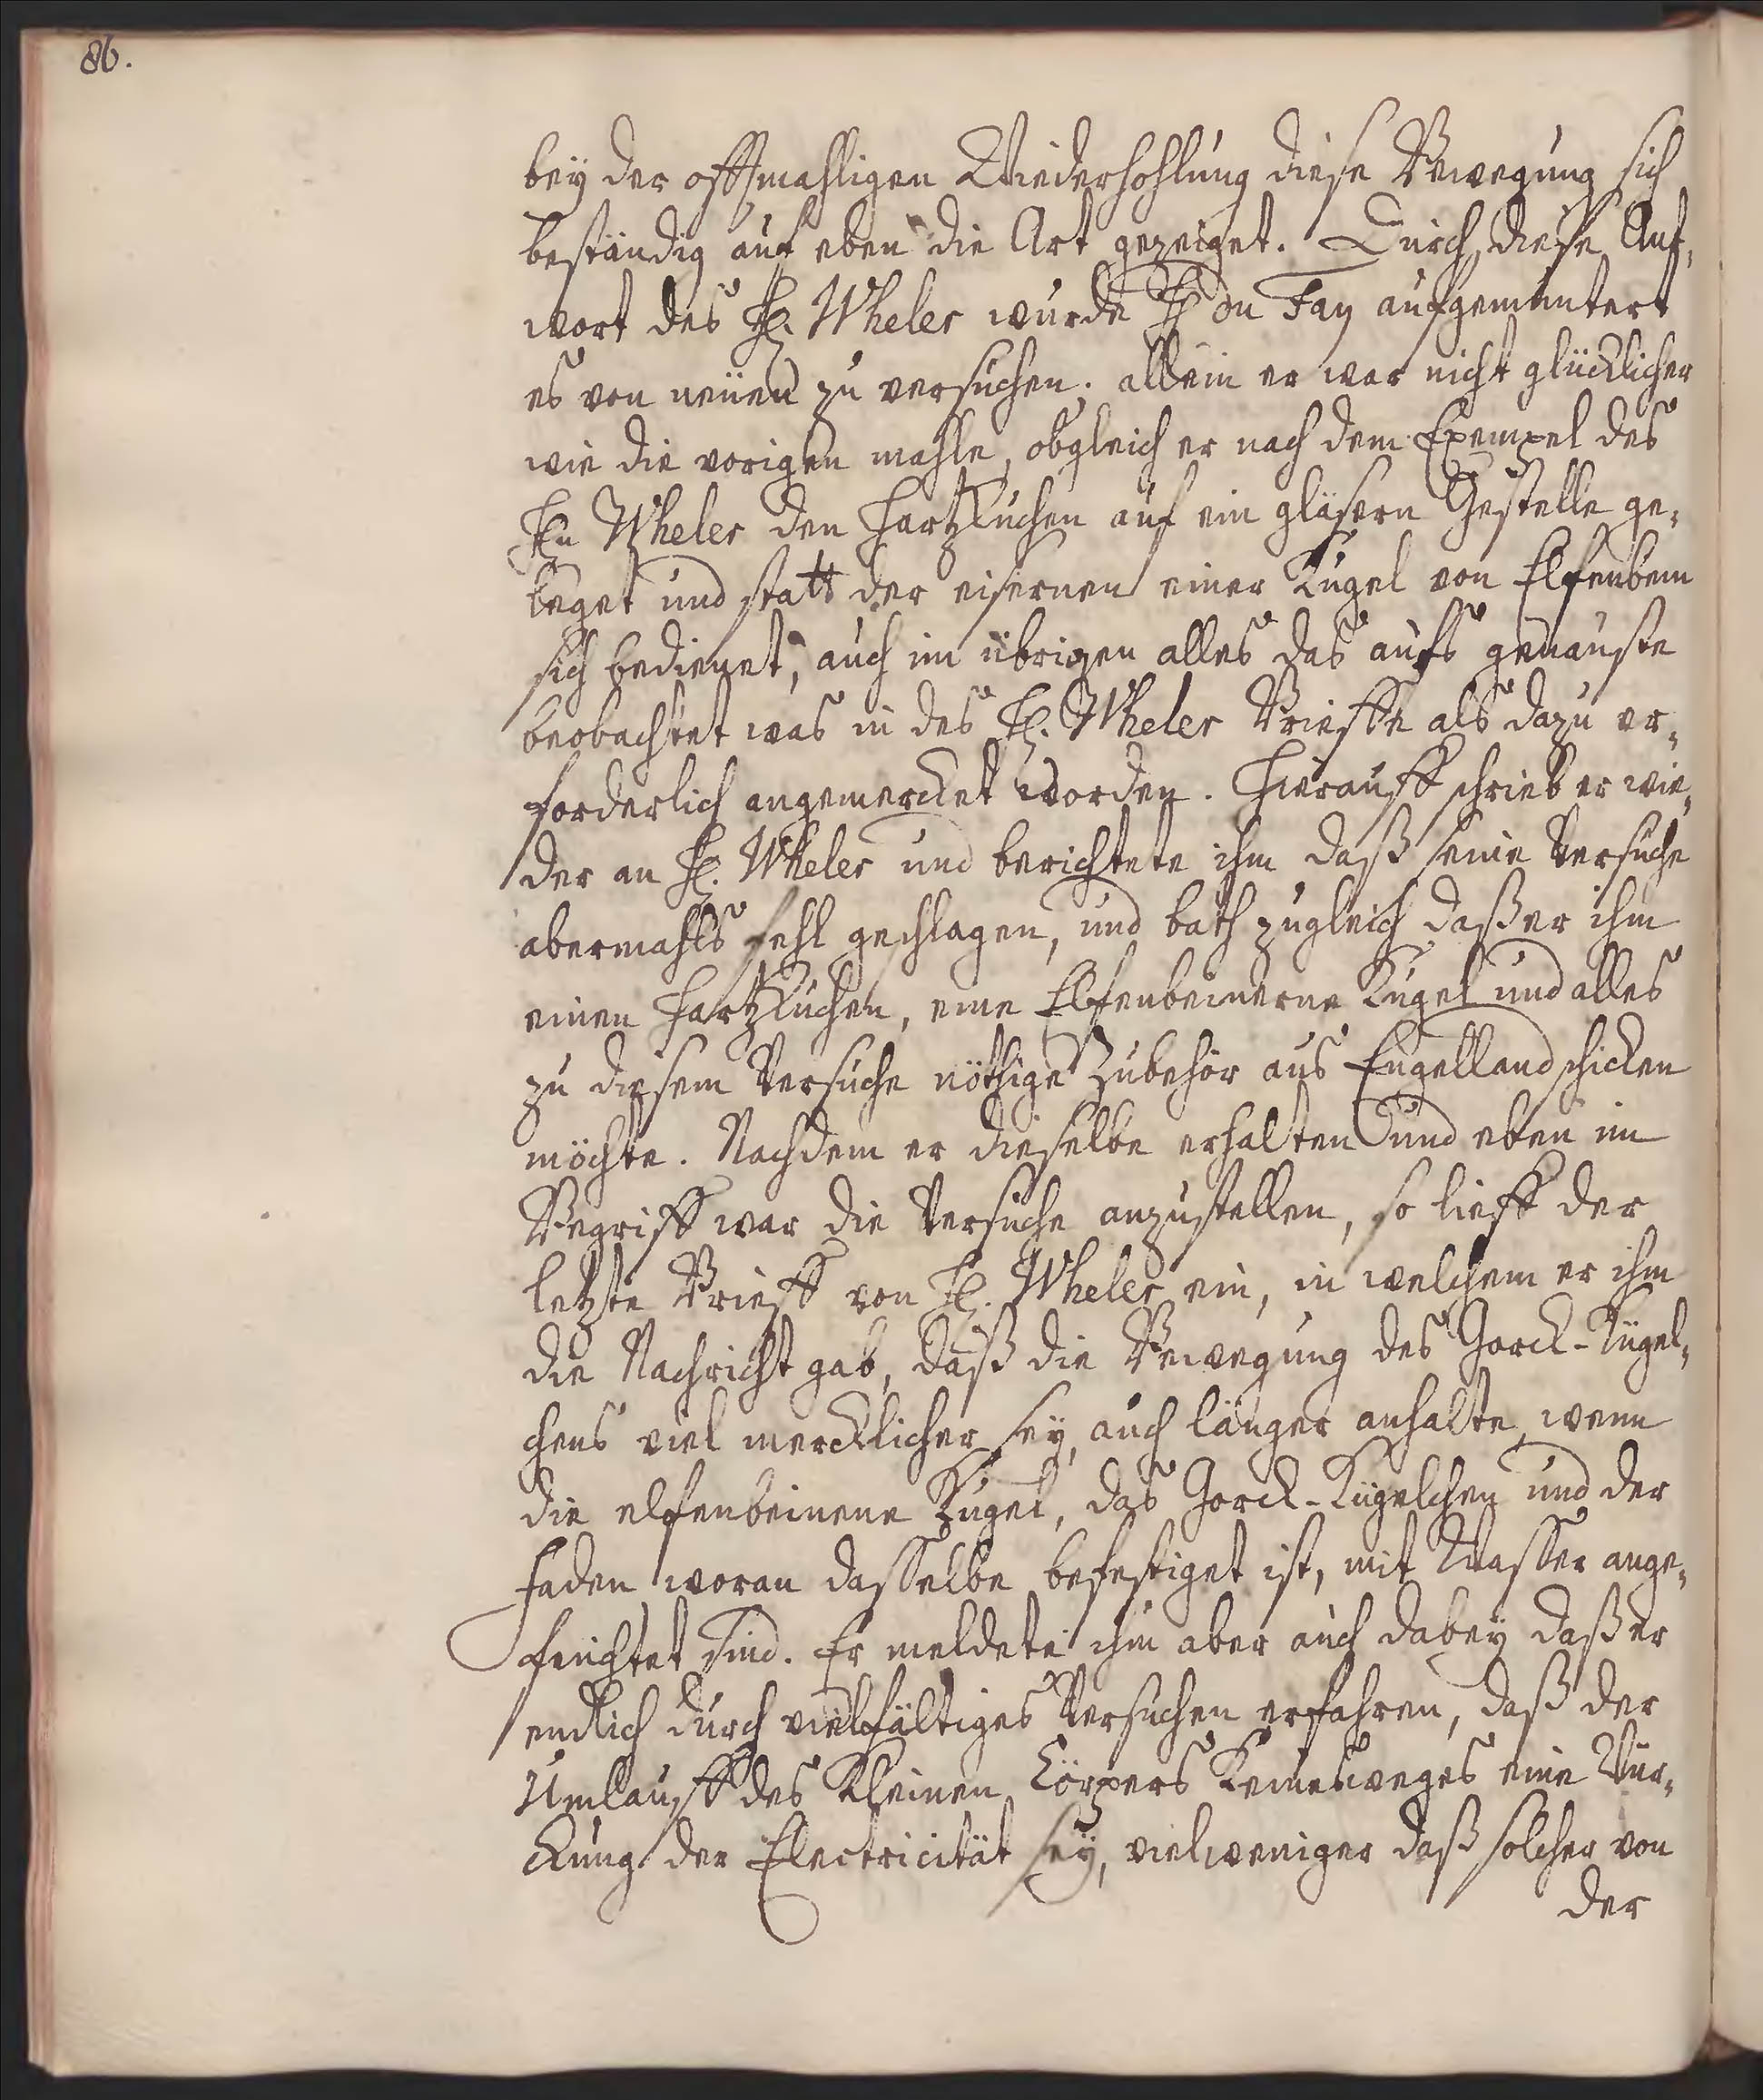 86.
bey der offtmahligen Wiederhohlung diese Bewegung sich
beständig auf eben die Art gezeiget. Durch diese Ant-
wort des H. Wheler wurde H du Fay aufgemuntert
es von neüen zu versuchen; allein er war nicht glücklicher
wie die vorigen mahle, obgleich er nach dem Exempel des
Hn Wheler den Hartzkuchen auf ein gläsern Gestelle ge-
leget und statt der eisernen einer Kugel von Elfenbein
sich bedienet, auch im übrigen alles das aufs genauste
beobachtet was in des H. Wheler Brieffe als dazu er-
forderlich angemercket worden. Hierauff schrieb er wie-
der an H. Wheler und berichtete ihm daß seine Versuche
abermahls fehl geschlagen, und bath zugleich daß er ihm
einen Hartzkuchen, eine Elfenbeinerne Kugel und alles
zu diesem Versuche nöthige Zubehör aus Engelland schicken
möchte. Nachdem er dieselbe erhalten und eben im
Begriff war die Versuche anzustellen, so lieff der
letzte Brieff von H. Wheler ein, in welchem er ihm
die Nachricht gab, daß die Bewegung des Gorck-Kügel-
chens viel mercklicher sey, auch länger anhalte, wenn
die elfenbeinene Kugel, das Gorck-Kügelchen und der
Faden woran dasselbe befestiget ist, mit Wasser ange-
feuchtet sind. Er meldete ihm aber auch dabey daß er
endlich durch vielfältiges Versuchen erfahren, daß der
Umlauff des Kleinen Cörpers Keinesweges eine Wür-
ckung der Electricität sey, vielweniger daß solcher von
der